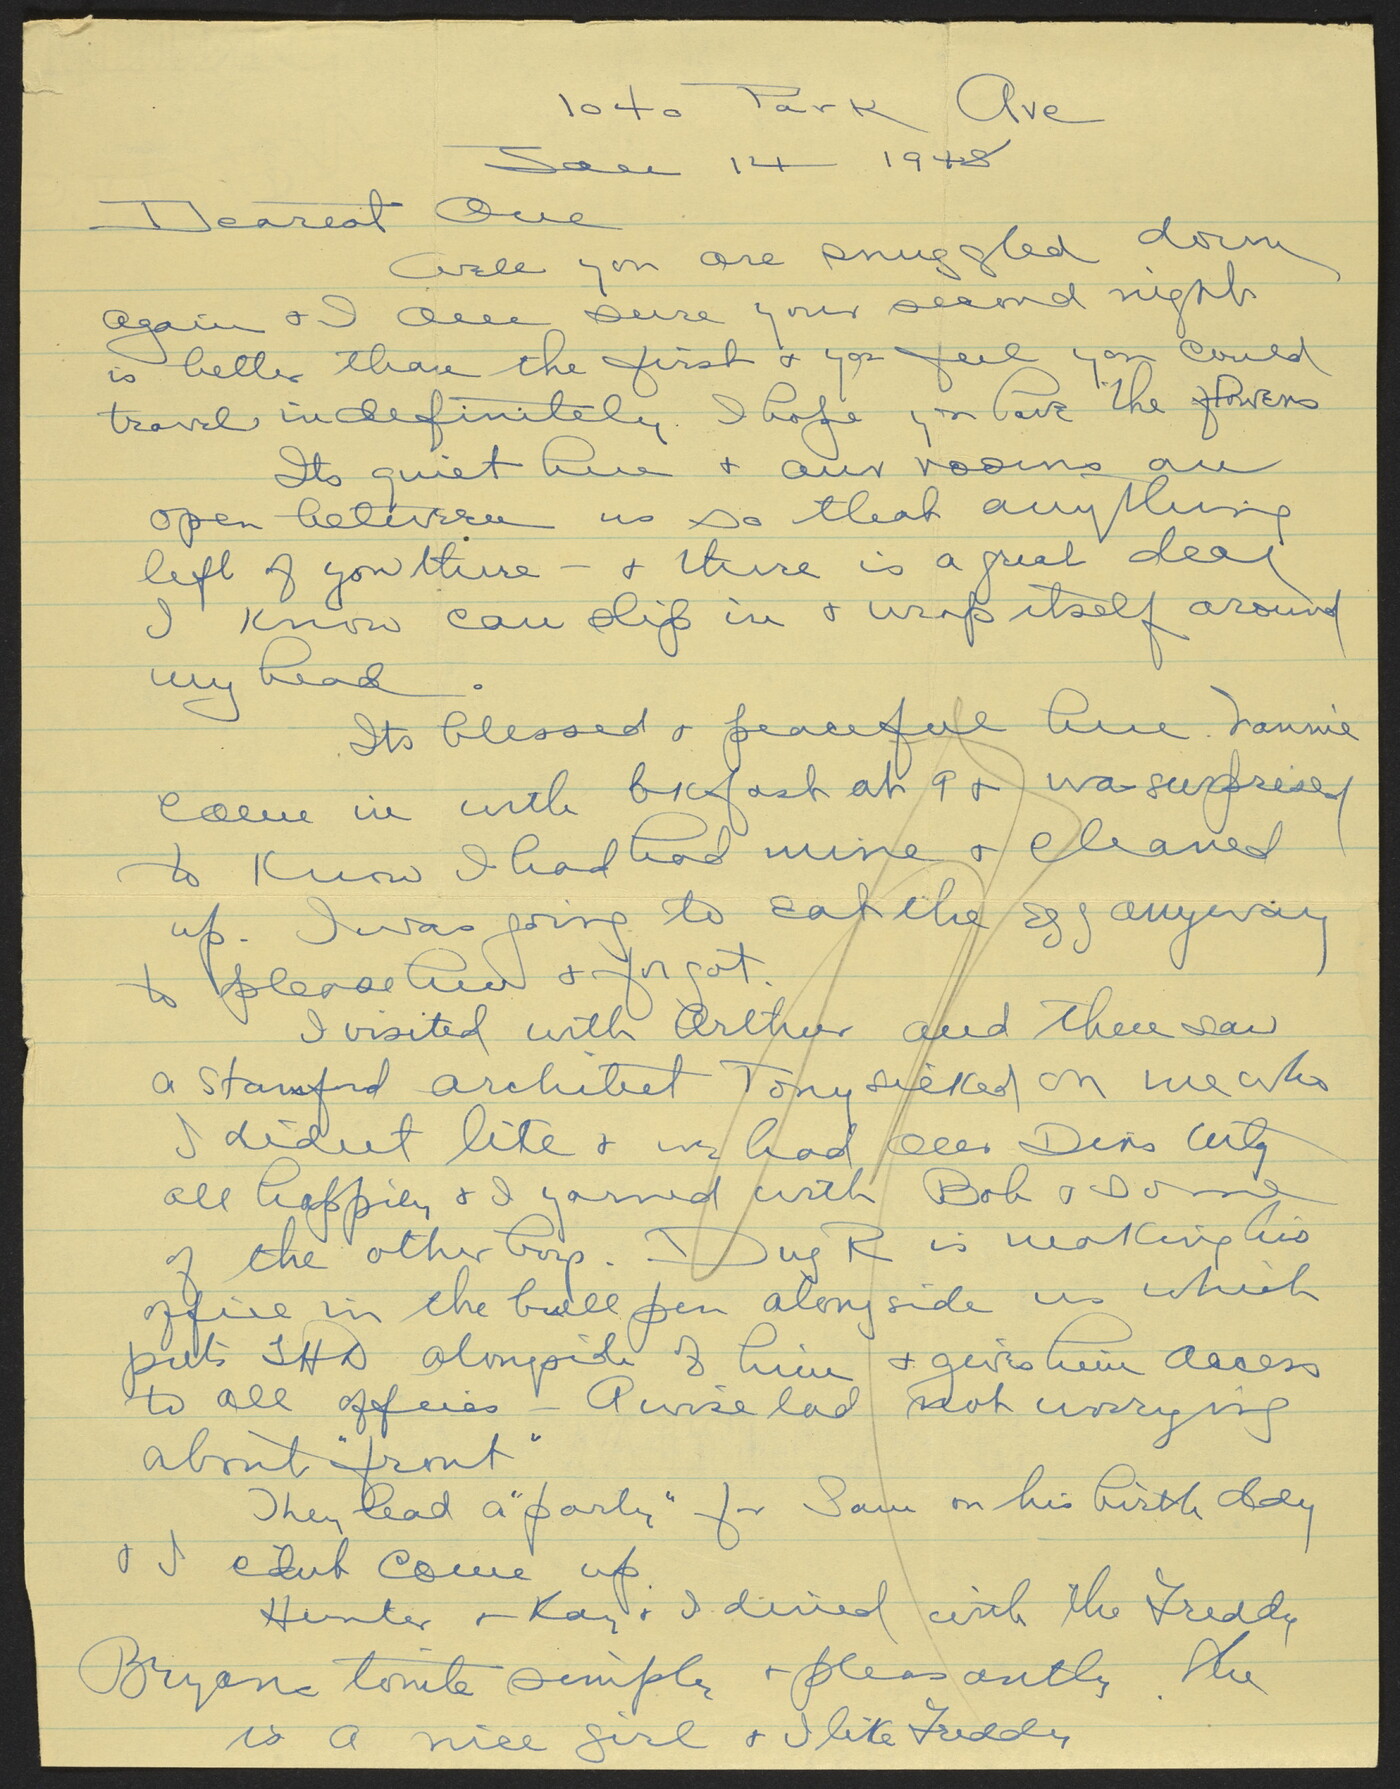 1040 Park Ave
Jan 14 1948
Dearest One
Well you are snuggled down
again & I am sure your second night
is better than the first & you feel you could
travel indefinitely. I hope you have the flowers
Its quiet here & our rooms are
open between us so that anything
left of you there – & there is a great deal
I know can slip in & wrap itself around
my head.
Its blessed & peaceful here. Fannie
came in with bkfast at 9 & was surprised
to know I had had mine & cleaned
up. I was going to eat the egg anyway
to please her & forgot.
I visited with Arthur and then saw
a Stamford architect Tony sicked on me who
I didnt like & we had our Divs
all happily & I yarned with Bob & some
of the other boys. Dug R is making his
office in the bull pen alongside us which
puts alongside of him & gives him access
to all offices – A wise lad not worrying
about "front"
They had a "party" for Sam on his birth day
& I cdnt come up.
Hunter & Kay & I dined with the Freddy
Bryans tonite simply & pleasantly. She
is a nice girl & I like Freddy